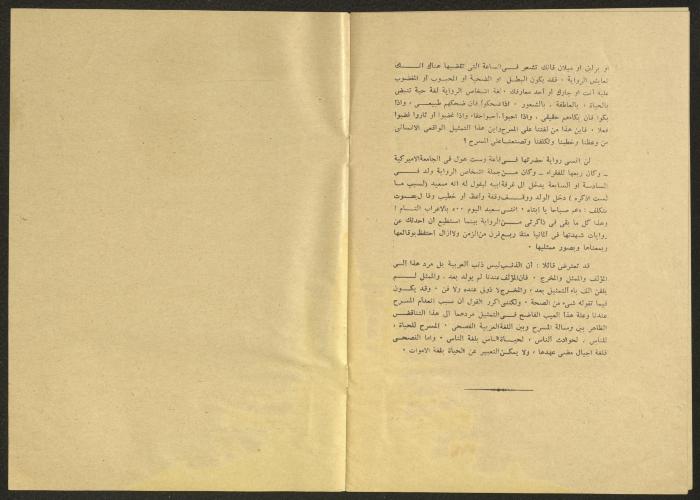 او برلين او ميلان فانك تشعر في الساعة التي تقضيها هناك انك
تعايش الرواية ٠ فقد يكون البطل او الضحية او المحبوب او المغضوب
عليه انت او جارك او أحد معارفك ٠ لغة اشخاص الرواية لغة حية تنبض
بالحياة ، بالعاطفة ، بالشعور ٠ اذا ضحكوا فان ضحكهم طبيعي ، واذا
بكوا فان بكاءهم حقيقي ، واذا احبوا أحبوا حقا ، واذا غضبوا او ثاروا غضبوا
فعلا ٠ فاين هذا من لغتنا على المسرح واين هذا التمثيل الواقعي الانساني
من وعظنا وخطبنا وتكلفنا وتصنعنا على المسرح ؟
لن انسى رواية حضرتها في قاعة وست هول في الجامعة الاميركية
ــ وكان ريعها للفقراء ــ وكان من جملة اشخاص الرواية ولد في
السادسة او السابعة يدخل الى غرفة ابيه ليقول له انه سعيد ( لسبب ما
لست اذكره ) دخل الولد ووقف وقفة واعظ او خطيب وقال بصوت
متكلف : « عم صباحا يا ابتاه ٠ انني سعيد اليوم ٠٠٠ بالاعراب التام !
وهذا كل ما بقي في ذاكرتي من الرواية بينما استطيع ان احدثك عن
روايات شهدتها في المانيا منذ ربع قرن من الزمن ولا ازال احتفظ بوقائعها
وبمعناها وبصور ممثليها ٠
قد تعترض قائلا : أن الذنب ليس ذنب العربية بل مرد هذا الى
المؤلف والممثل والمخرج ٠ فان المؤلف عندنا لم يولد بعد ، والممثل لم
يلقن الف باء التمثيل بعد ، والمخرج لا ذوق عنده ولا فن ٠ وقد يكون
فيما تقوله شيء من الصحة ٠ ولكنني اكرر القول أن سبب انعدام المسرح
عندنا وعلة هذا العيب الفاضح في التمثيل مردهما الى هذا التناقض
الظاهر بين رسالة المسرح وبين اللغة العربية الفصحى ٠ المسرح للحياة ،
للناس ، لحوادث الناس ، لحياة الناس بلغة الناس ٠ واما الفصحى
فلغة اجيال مضى عهدها ، ولا يمكن التعبير عن الحياة بلغة الاموات ٠